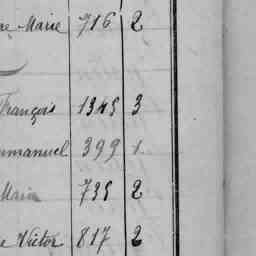 Marie 716 2
François 1345 3
mmanuel 399 1
Marie 735 2
Victor 817 2